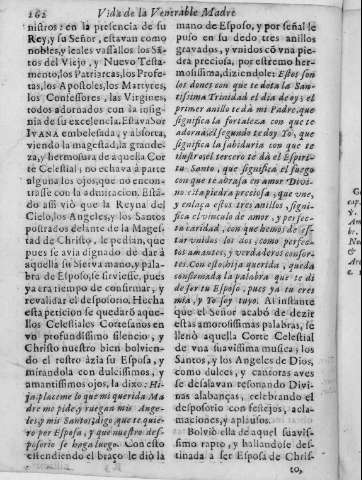 262 Vida de la Venerable Madre
nistros: en la presencia de su
Rey, y su Señor, estavan como
nobles, y leales vassallos los Sã-
tos del Viejo, y Nuevo Testa-
mento, los Patriarcas, los Profe-
tas, los Apostoles, los Martyres,
los Confessores, las Virgines,
todos adornados con la insig-
nia de su excelencia. Estava Sor
IVANA embelesada, y absorta,
viendo la magestad, la grande-
za, y hermosura de aquella Corte
Celestial; no echava à parte
alguna los ojos, que no encon-
trasse con la admiracion. Estã-
do assi viò que la Reyna del
Cielo, los Angeles, y los Santos
postrados delante de la Mages-
tad de Christo, le pedian, que
pues se avia dignado de dar à
aquella su Sierva mano, y pala-
bra de Esposo, se sirviesse, pues
ya era tiempo de confirmar, y
revalidar el desposorio. Hecha
esta peticion se quedarõ aque-
llos Celestiales Cortesanos en
vn profundissimo silencio, y
Christo nuestro bien bolvien-
do el rostro àzia su Esposa, y
mirandola con dulcissimos, y
amantissimos ojos, la dixo: Hi-
ja, placeme lo que mi querida Ma-
dre me pide, y ruegan mis Ange-
les, y mis Santos; digo, que te quie-
ro por Esposa, y que nuestro des-
posorio se haga luego. Con esto
estendiendo el braço le diò la
mano de Esposo, y por señal le
puso en su dedo tres anillos
gravados, y vnidos cõ vna pie-
dra preciosa, por estremo her-
mosissima, diziendole: Estos son
los dones con que te dota la San-
tissima Trinidad el dia de oy: el
primer anillo te dà mi Padre, que
significa la fortaleza con que te
adorna: el segundo te doy Yo, que
significa la sabiduria con que te
ilustro: el tercero te dà el Espiri-
tu Santo, que significa el fuego
con que te abrasa en amor Divi-
no: esta piedra preciosa, que vne,
y enlaça estos tres anillos, signi-
fica el vinculo de amor, y perfec-
ta caridad, con que hemos de es-
tar vnidos los dos, como perfec-
tos amantes, y verdaderos consor-
tes. Con esto, hija querida, queda
confirmada la palabra que te di
de ser tu Esposo, pues ya tu eres
mia, y Yo soy tuyo. Al instante
que el Señor acabò de dezir
estas amorosissimas palabras, se
llenò aquella Corte Celestial
de vna suavissima musica; los
Santos, y los Angeles de Dios,
como dulces, y cantoras aves
se desalavan resonando Divi-
nas alabanças, celebrando el
desposorio con festejos, acla-
maciones, y aplausos.
Bolviò ella de aquel suavis-
simo rapto, y hallandose des-
tinada a ser Esposa de Chris-
to,